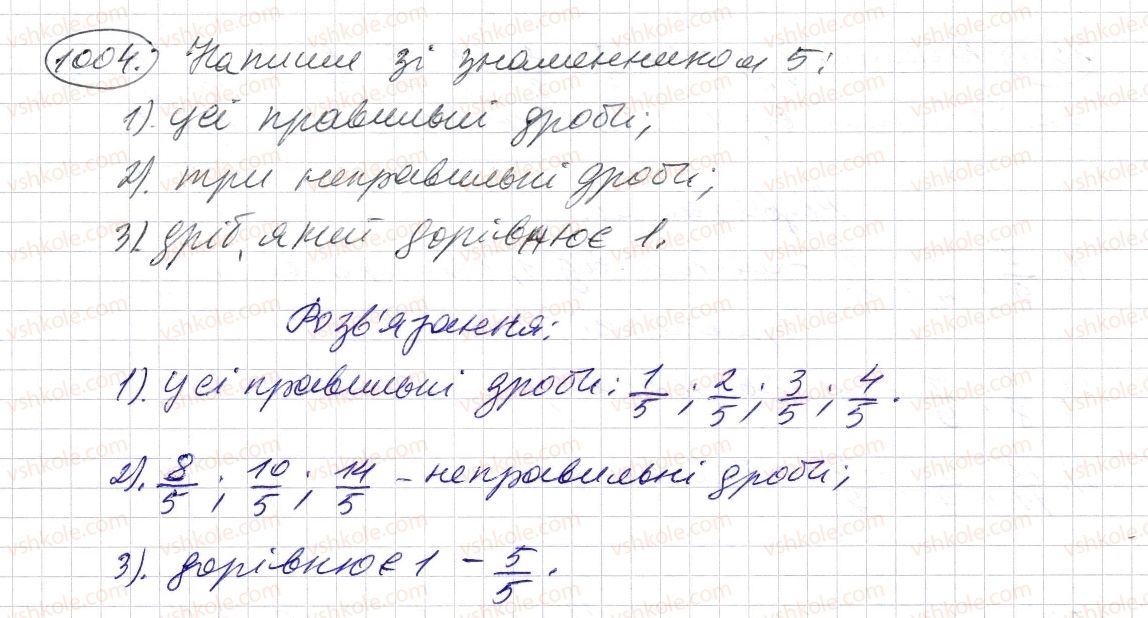 1004. Напиши зі знаменником 5:
1). усі правильні дроби;
2). три неправильні дроби;
3). дріб, який дорівнює 1.
Розв'язання:
1). Усі правильні дроби: 1/5; 2/5; 3/5; 4/5.
2). 8/5; 10/5; 14/5 – неправильні дроби;
3). дорівнює 1 – 5/5.